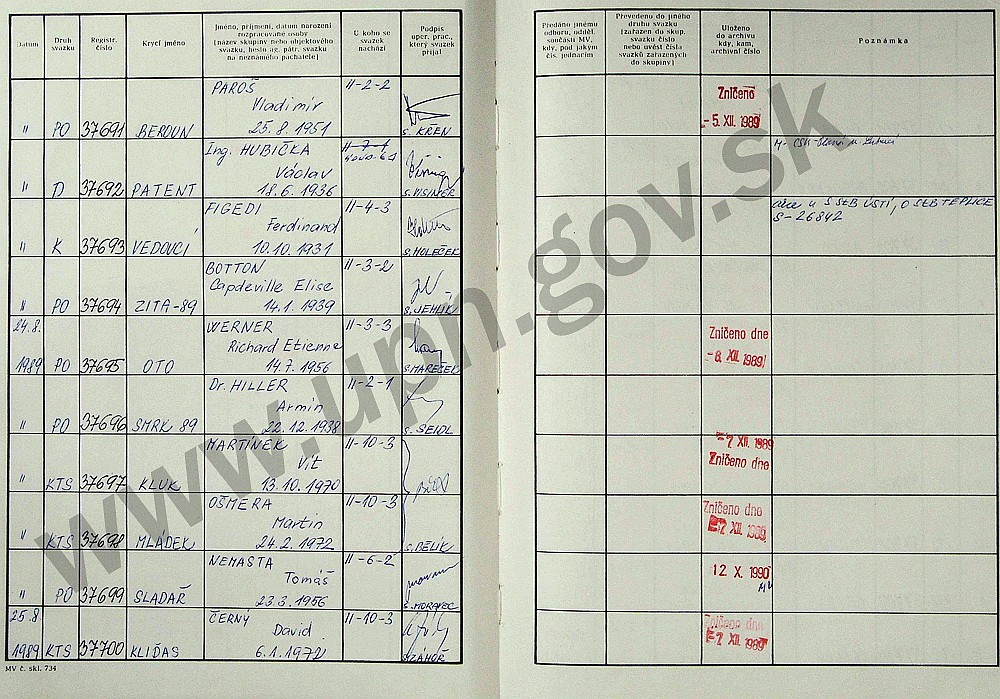 Datum
Druh svazku
Registr. číslo
Krycí jméno
Jméno, příjmení, datum narození rozpracované osoby
[název skupiny nebo objektového svazku, heslo ag. pátr. svazku na neznámého pachatele]
U koho se svazek nachází
Podpis oper. prac., který svazek přijal
Předáno jinému odboru, odděl. součásti MV, kdy, pod jakým čís. jednacím
Převedeno do jiného druhu svazku [zařazen do skup. svazku číslo nebo uvést čísla svazků zařazených do skupiny]
Uloženo do archivu kdy, kam, archivní číslo
Poznámka
PAROŠ II-2-2
Vladimír
" PO 37691 BEROUN 25.8.1951 S. KŘEN
Zničeno
-5. XII. 1989
Ing. HUBIČKA
Václav
" D 37692 PATENT 18.6.1936
FIGEDI II-4-3
Ferdinand
" K 37693 VEDOUCÍ 10.10.1931 S. HOLEČEK
akce u S SEB ÚSTÍ, O SEB TEPLICE
S-26842
BOTTON II-3-2
Capdeville Elise
" PO 37694 ZITA-89 14.1.1939 S. JEHLÍK
24.8. WERNER II-3-3
Richard Etienne
1989 PO 37695 OTO 14.7.1956 S MAREČEK
Zničeno dne
-8. XII. 1989
Dr. HILLER II-2-1
Armin
" PO 37696 SMRK 89 22.12.1938 S. SEIDL
MARTÍNEK II-10-3
Vít
" KTS 37697 KLUK 13.10.1970
-7 XII. 1989
Zničeno dne
OŠMERA II-10-3
Martin
" KTS 37698 MLÁDEK 24.2.1972 S. BĚLÍK
Zničeno dne
-7 XII. 1989
NEMASTA II-6-2
Tomáš
" PO 37699 SLADAŘ 23.3.1956 S. MORAVEC
12. X. 1990
25.8. ČERNÝ II-10-3
David
1989 KTS 37700 KLIĎAS 6.1.1972 S ZÁHOŘ
Zničeno dne
-7 XII. 1989
MV č. skl. 734
www.upn.gov.sk